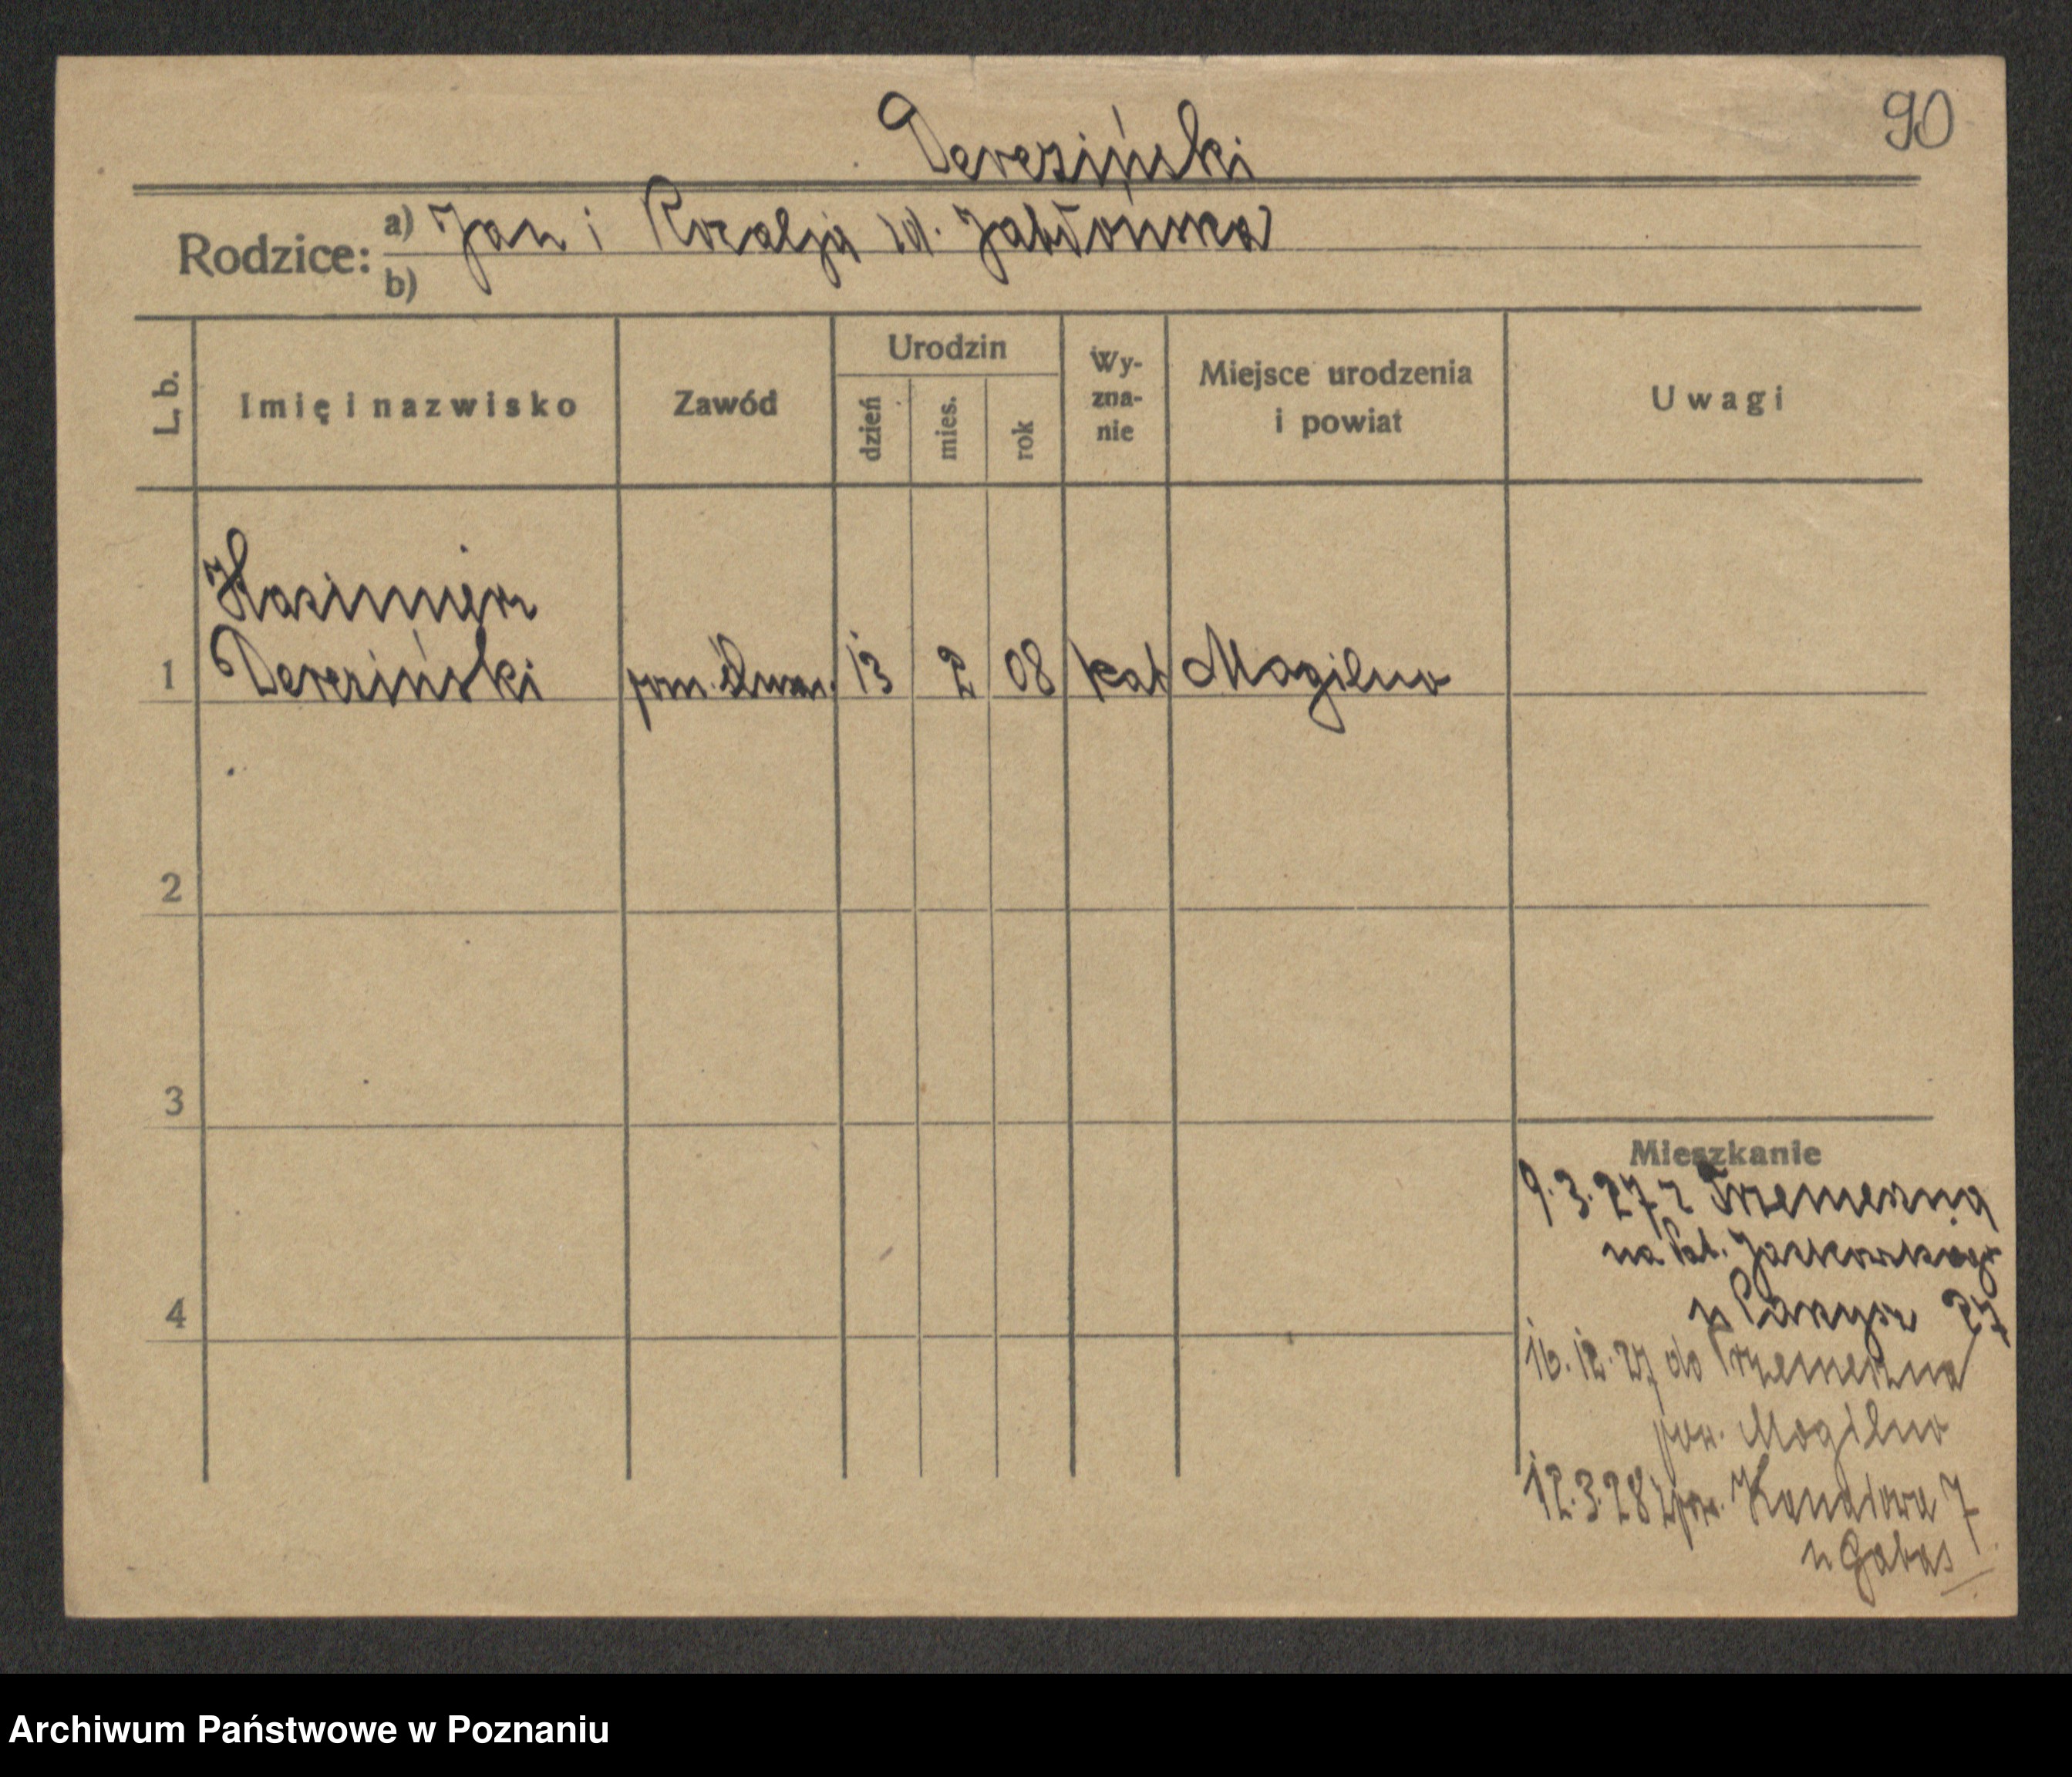 90
Dereziński
Rodzice: a) Jan i Rozalja zd. Jabłońska
b)
L. b. Imię i nazwisko Zawód Urodzin dzień mies. rok Wy-zna-nie Miejsce urodzenia i powiat Uwagi
Kazimierz
1 Dereziński pom. 13 2 08 kat Mogilno
2
3
4
Mieszkanie
9.3.27 z Trzemeszna
na Jackowskiego
u 27
16.12.27 do Trzemeszna
pow. Mogilno
12.3.28 Kanałowa 7
u Gabas
Archiwum Państwowe w Poznaniu